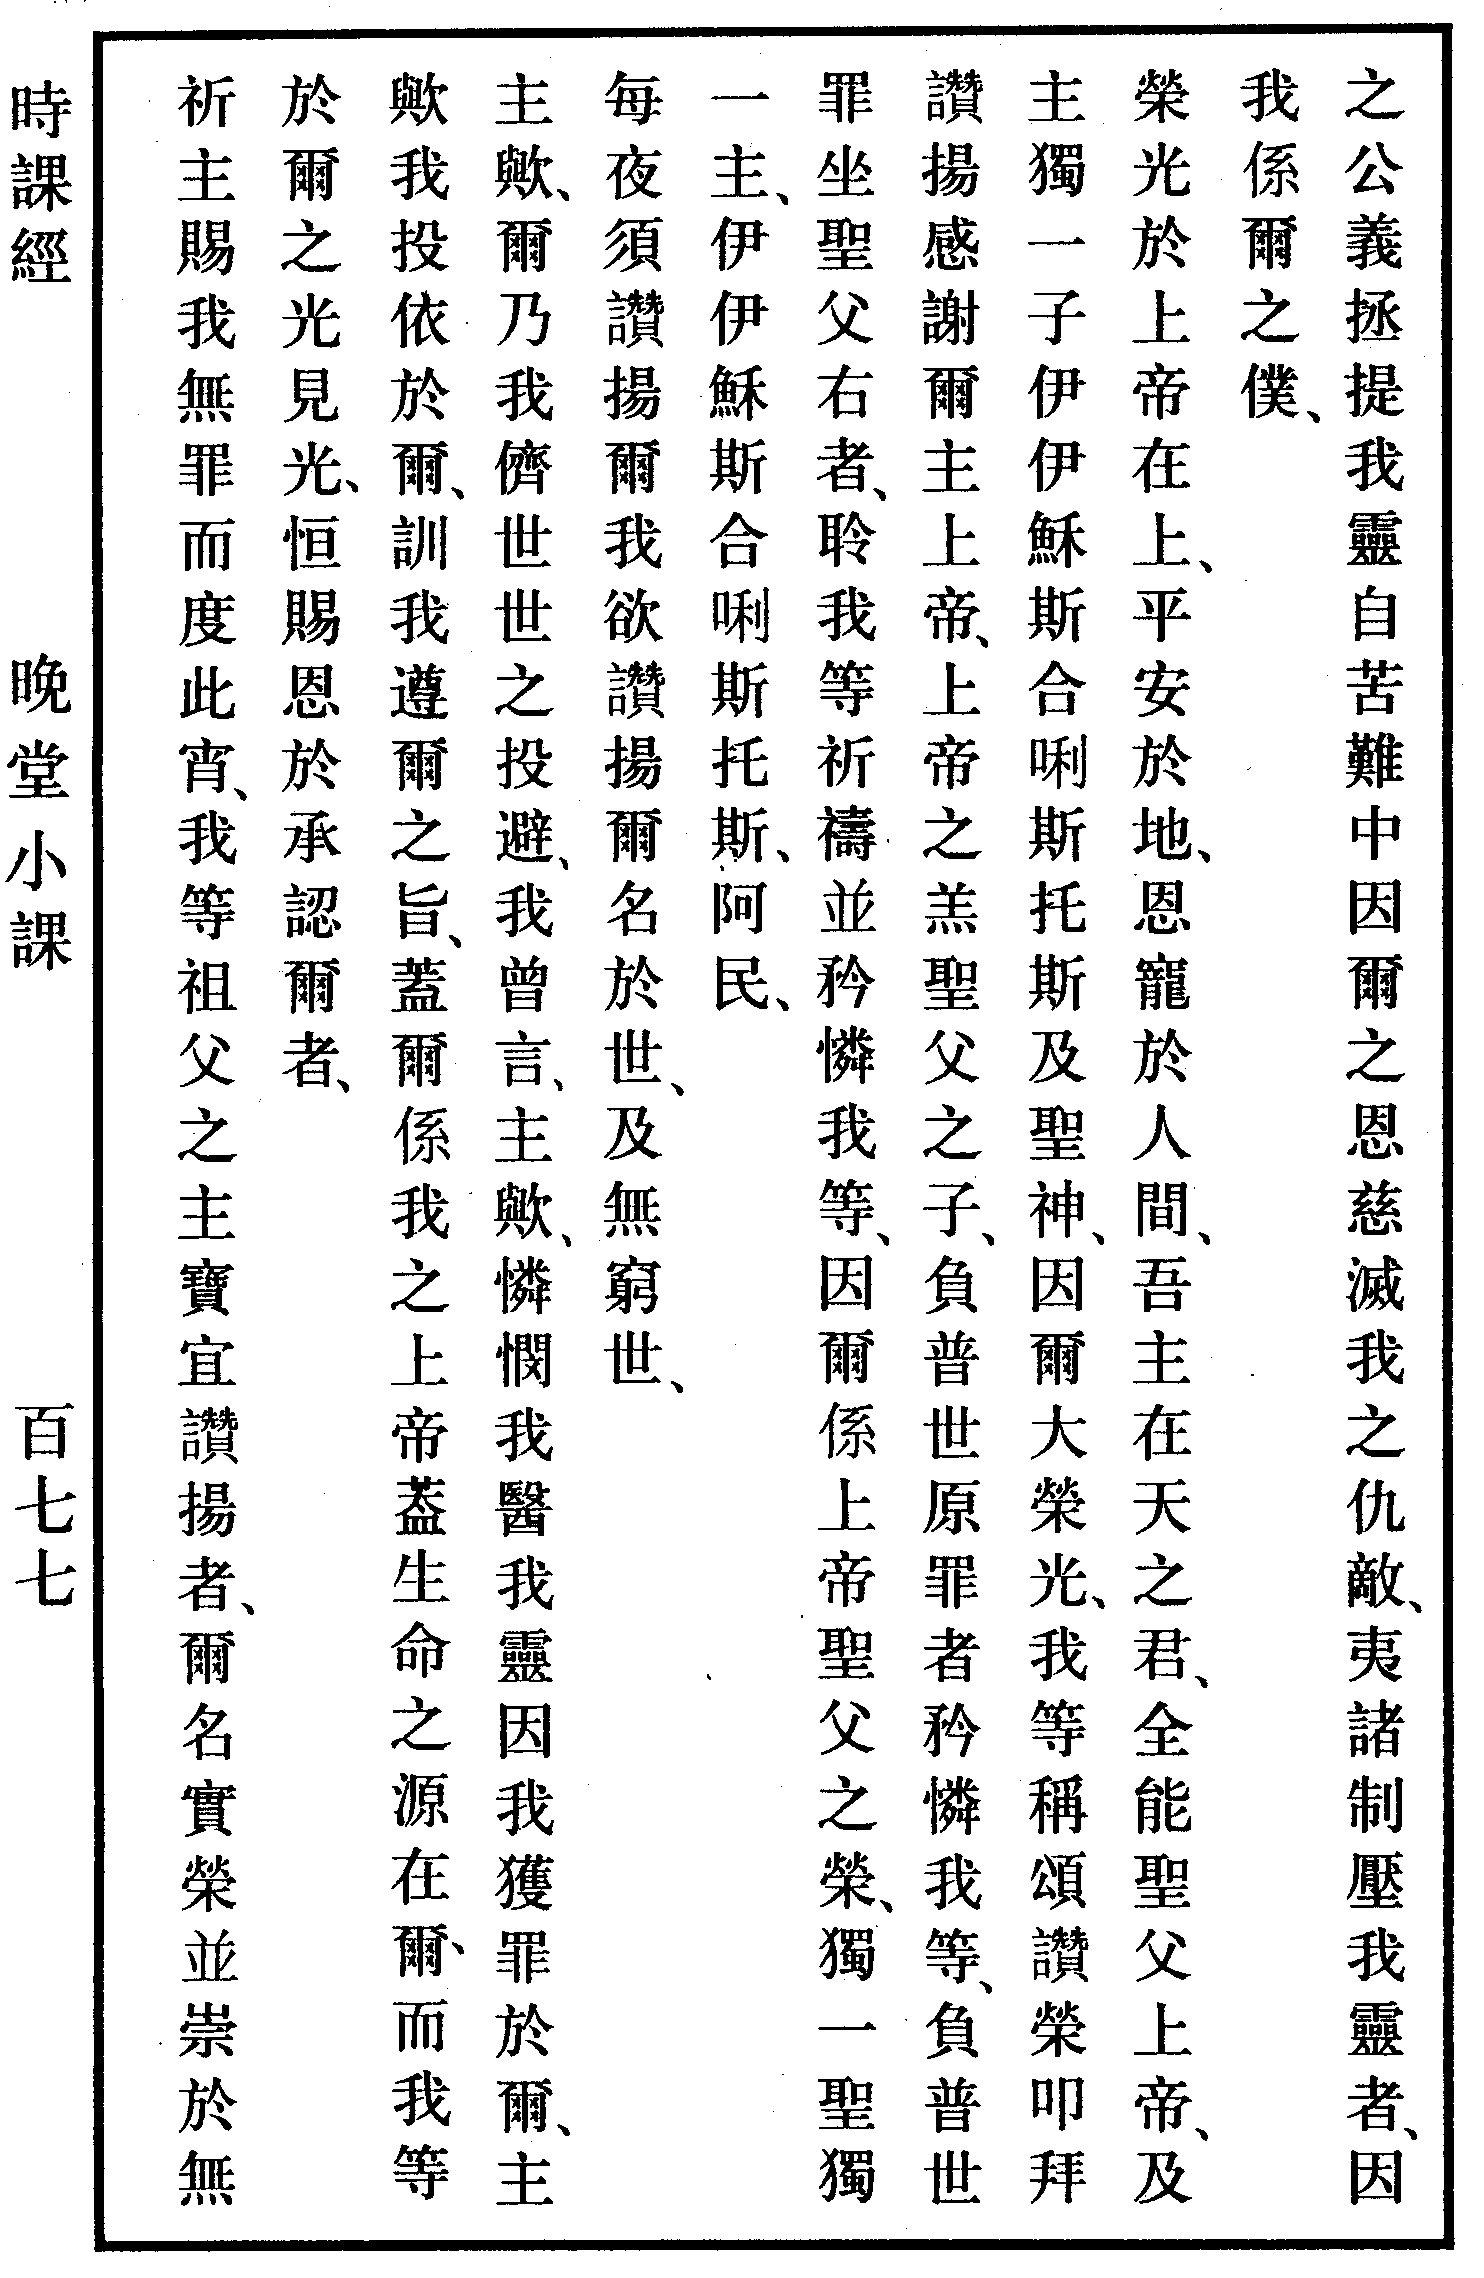 之公義拯提我靈自苦難中因爾之恩慈滅我之仇敵、夷諸制壓我靈者、因
我係爾之僕、
榮光於上帝在上、平安於地、恩寵於人間、吾主在天之君、全能聖父上帝、及
主獨一子伊伊穌斯合唎斯托斯及聖神、因爾大榮光、我等稱頌讚榮叩拜
讚揚感謝爾主上帝、上帝之羔聖父之子、負普世原罪者矜憐我等、負普世
罪坐聖父右者、聆我等祈禱並矜憐我等、因爾係上帝聖父之榮、獨一聖獨
一主、伊伊穌斯合唎斯托斯、阿民、
每夜須讚揚爾我欲讚揚爾名於世、及無窮世、
主歟、爾乃我儕世世之投避、我曾言、主歟、憐憫我醫我靈因我獲罪於爾、主
歟我投依於爾、訓我遵爾之旨、蓋爾係我之上帝葢生命之源在爾、而我等
於爾之光見光、恒賜恩於承認爾者、
祈主賜我無罪而度此宵、我等祖父之主寶宜讚揚者、爾名實榮並崇於無
時課經 晚堂小課 百七七